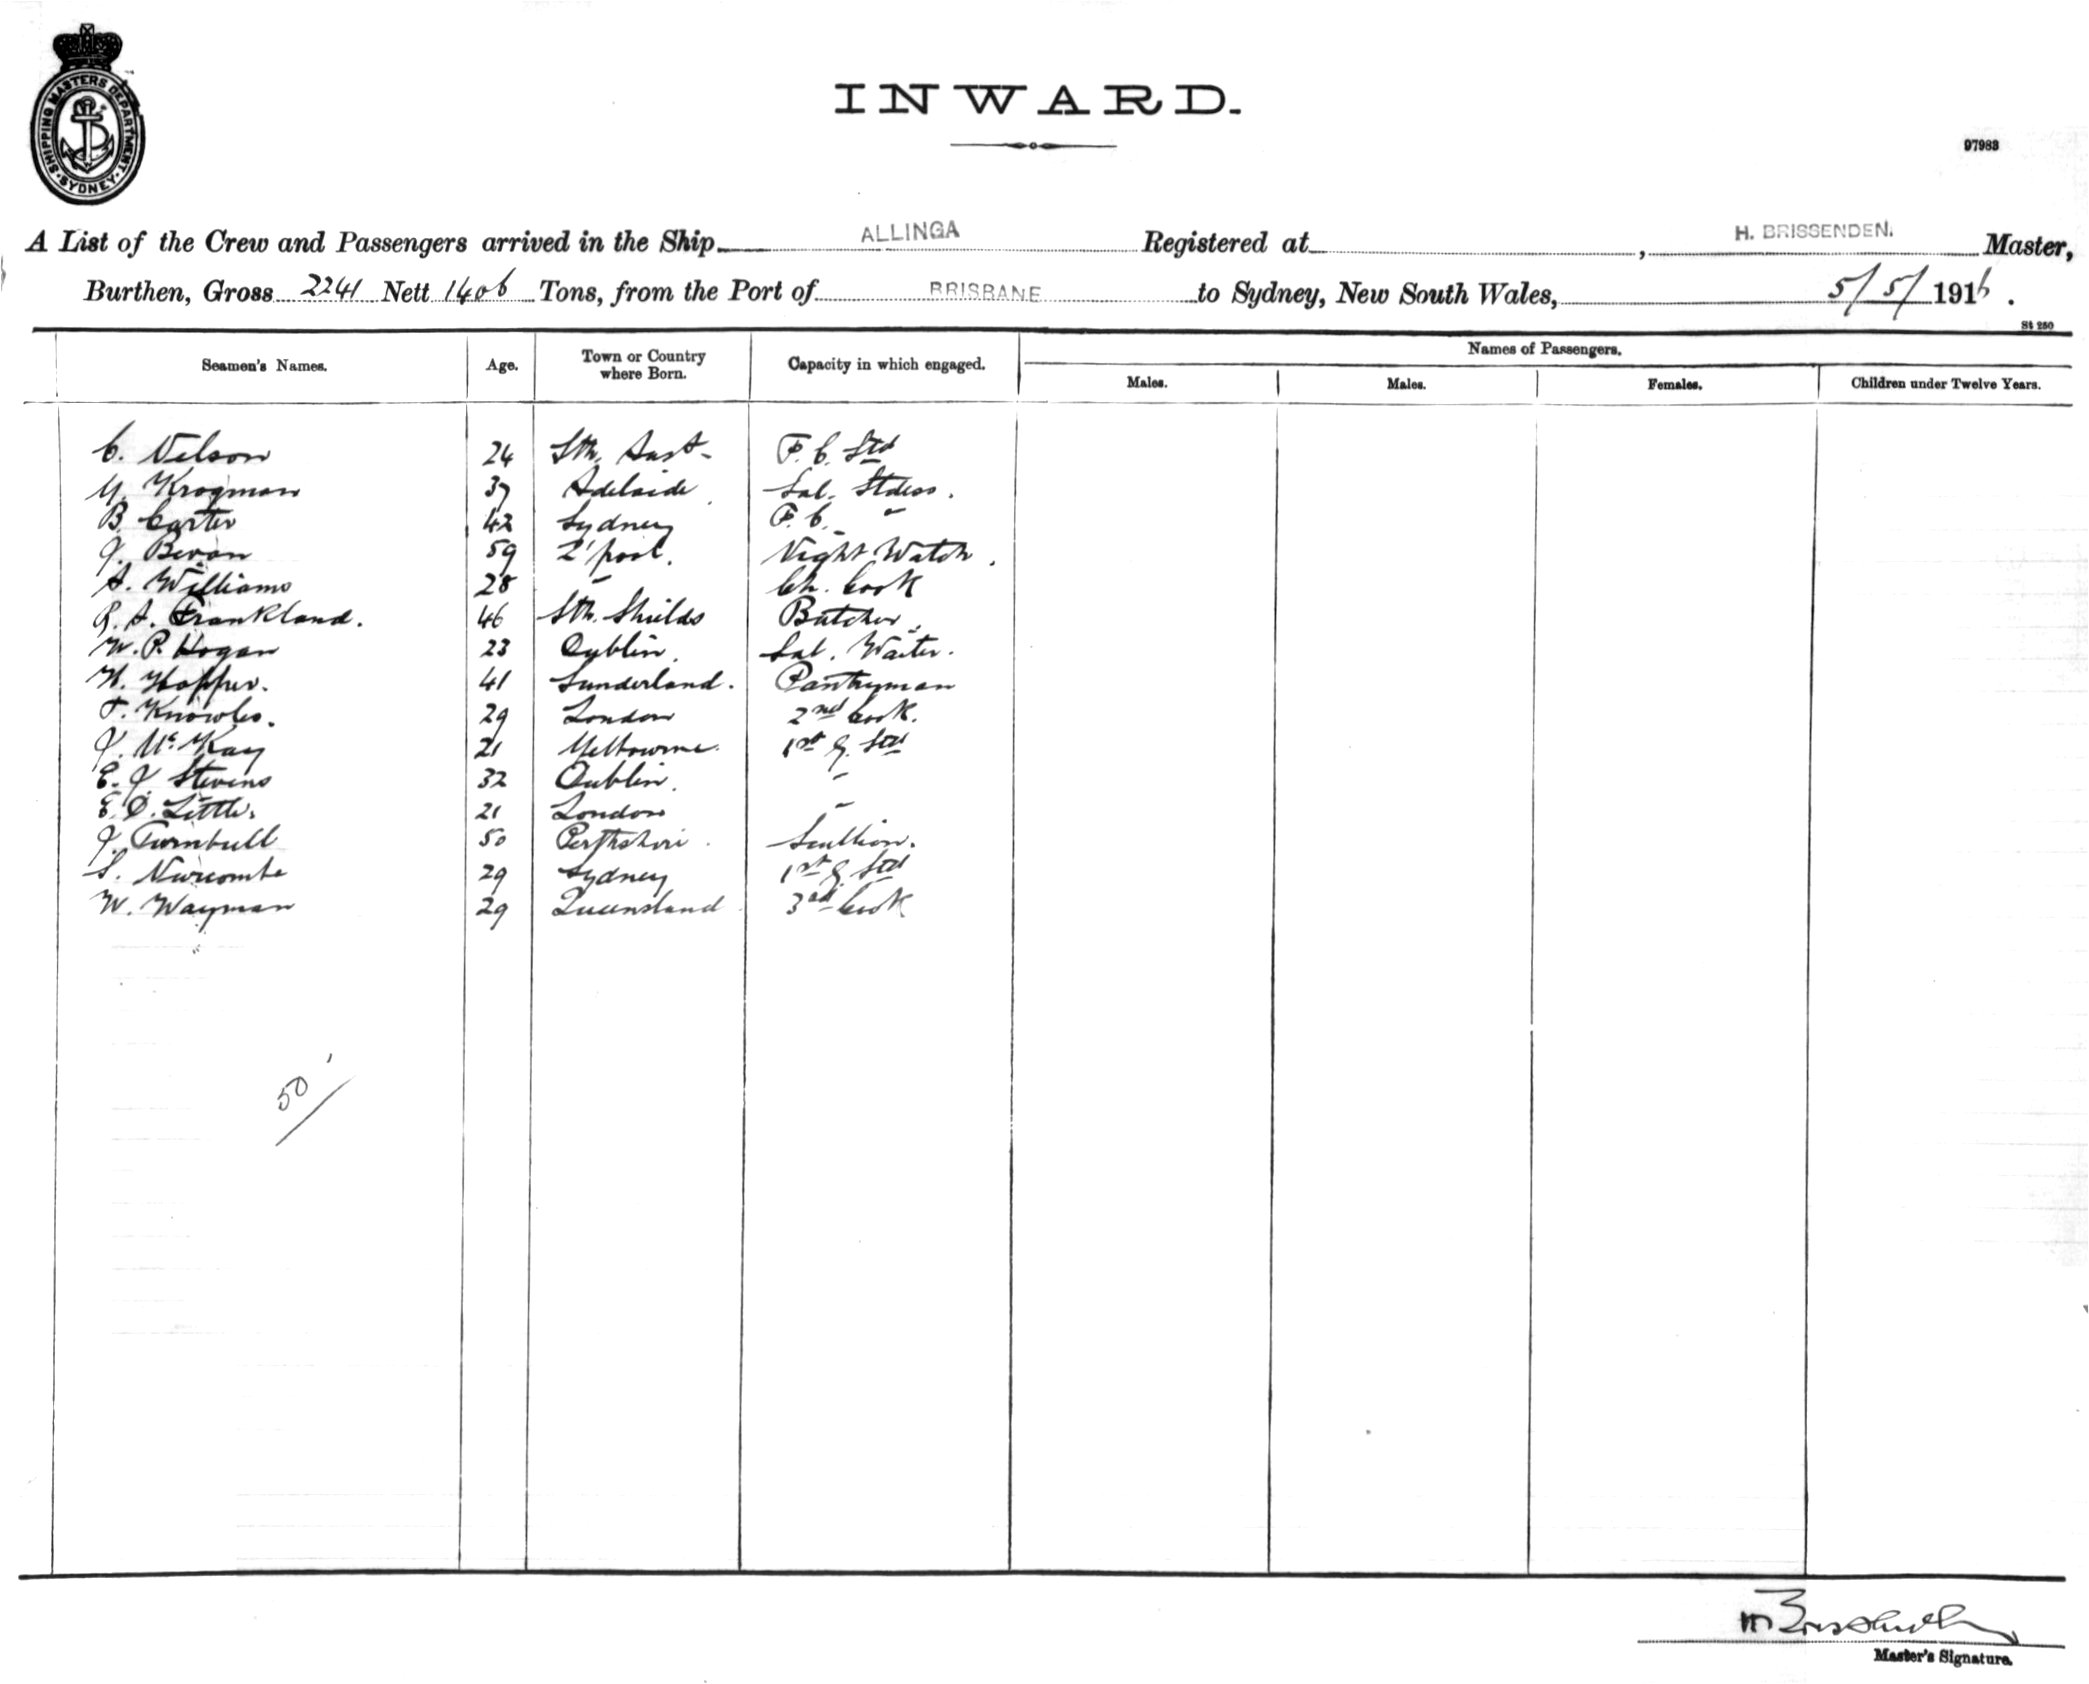 SHIPPING MASTERS DEPARTMENT. SYDNEY.
INWARD.
97983
A List of the Crew and Passengers arrived in the Ship ALLINGA Registered at , H. BRISSENDEN. Master,
Burthen, Gross 2241 Nett 1406 Tons, from the Port of BRISBANE to Sydney, New South Wales, 5/5/1916.
St 250
Seamen's Names. Age. Town or Country where Born. Capacity in which engaged. Names of Passengers.
Males. Males. Females. Children under Twelve Years.
C. Nelson 24 Sth. Aust- F. C. Std
M. Krogman 37 Adelaide Sal. Stdess.
B. Carter 42 Sydney F. C. "
J. Bevan 59 L'pool. Night Watch.
A. Williams 28 " Ch. Cook
R. A. Frankland. 46 Sth. Shields Butcher.
W. P. Hogan 23 Dublin. Sal. Waiter.
H. Hopper. 41 Sunderland. Pantryman
T. Knowles. 29 London 2nd Cook.
J. McKay 21 Melbourne. 1st G. Std
E. J. Stevens 32 Dublin. "
E. D. Little. 21 London "
J. Turnbull 50 Perthshire. Scullion.
S. Newcombe 29 Sydney 1st G. Std
W. Wayman 29 Queensland 3rd Cook
50
H Brissenden
Master's Signature.